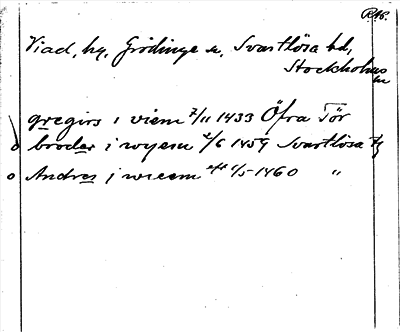 RAp.
Viad, by, Grödinge sn, Svartlösa hd,
Stockholms
ln
gregirs i viem 7/11 1433 Öfra Tör
broder i wyem 2/6 1459 Svartlösa
Andres j wieem 1/5 1460 "